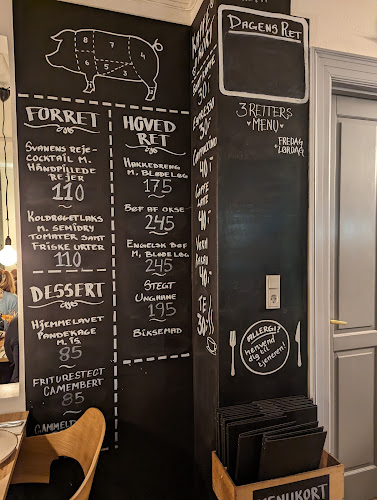 8
7
4
6
5
3
FORRET
SVANENS REJE-
COCKTAIL M.
HÅNDPILLEDE
REJER
110
KOLDRØGET LAKS
M. SEMIDRY
TOMATER SAMT
FRISKE URTER
110
DESSERT
HJEMMELAVET
PANDEKAGE
M. IS
85
FRITURESTEGT
CAMEMBERT
85
HOVED
RET
HAKKEDRENG
M. BLØDE LØG
175
BØF AF OKSE
245
ENGELSK BØF
M. BLØDE LØG
245
STEGT
UNGHANE
195
BIKSEMAD
KAFFE
30,-
ESPRESSO
30,-
CAPPUCCINO
40,-
CAFFE
LATTE
40,-
VARM
KAKAO
40,-
TE
DAGENS RET
3 RETTERS
MENU
FREDAG
+ LØRDAG
ALLERGI?
HENVEND
DIG TIL
TJENEREN!
MENUKORT